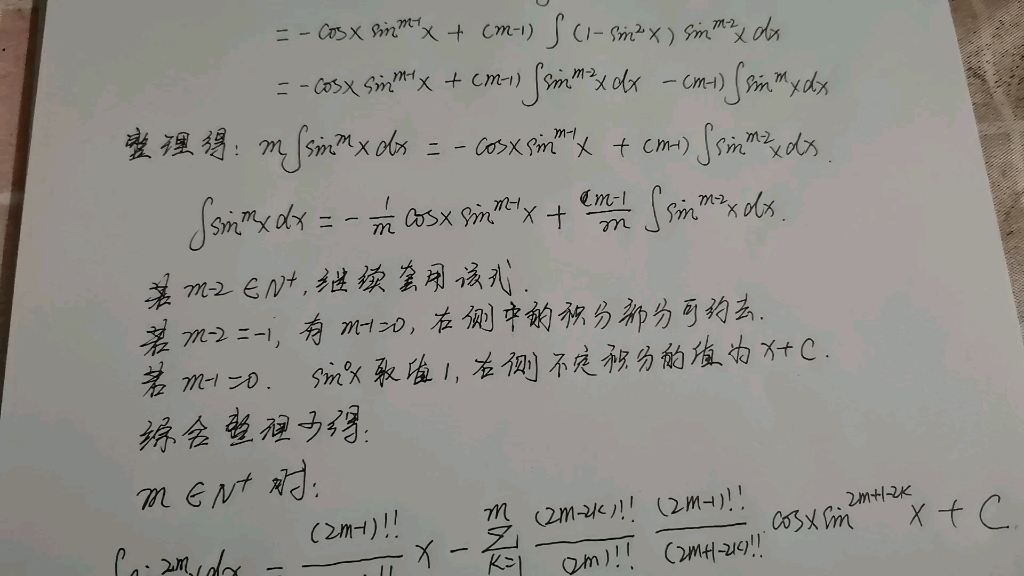 = - cosx sin^{m-1}x + (m-1) ∫ (1-sin²x) sin^{m-2}x dx
= - cosx sin^{m-1}x + (m-1) ∫ sin^{m-2}x dx - (m-1) ∫ sin^m x dx
整理得: m∫sin^m x dx = - cosx sin^{m-1}x + (m-1) ∫sin^{m-2}x dx.
∫sin^m x dx = - \frac{1}{m} cosx sin^{m-1}x + \frac{m-1}{m} ∫sin^{m-2}x dx.
若 m-2 ∈ N⁺, 继续套用该式.
若 m-2 = -1, 有 m-1=0, 右侧中的积分部分可约去.
若 m-1=0. sin⁰x 取值1, 右侧不定积分的值为 x+C.
综合整理可得:
m ∈ N⁺ 时:
∫sin^{2m}x dx = \frac{(2m-1)!!}{!!} x - \sum_{k=1}^{m} \frac{(2m-2k)!!}{(2m)!!} \frac{(2m-1)!!}{(2m+1-2k)!!} cosx sin^{2m+1-2k} x + C